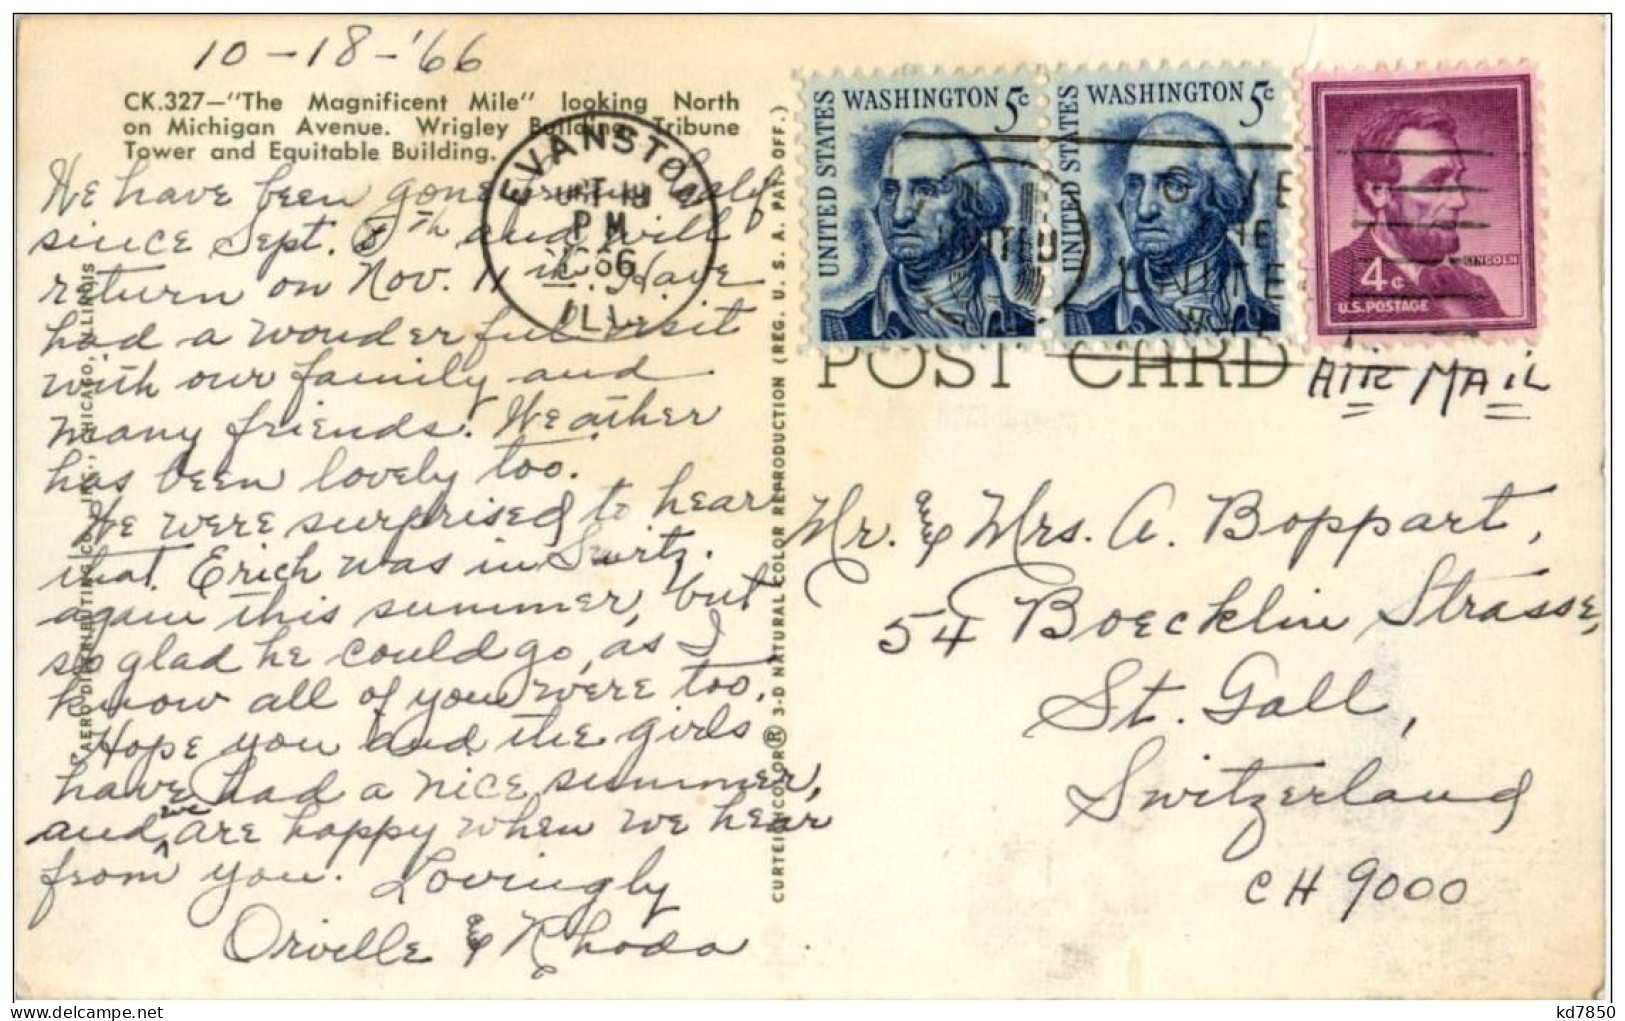 10-18-'66
CK.327—"The Magnificent Mile" looking North
on Michigan Avenue. Wrigley Building, Tribune
Tower and Equitable Building.
We have been gone from Calif
since Sept. 8th and will
return on Nov. 11th. Have
had a wonderful visit
with our family and
many friends. Weather
has been lovely too.
We were surprised to hear
that Erich was in Switz.
again this summer, but
so glad he could go, as I
know all of you were too.
Hope you and the girls
have had a nice summer,
and we are happy when we hear
from you. Lovingly
Orville & Rhoda
AERO DISTRIBUTING CO., INC., CHICAGO, ILLINOIS
EVANSTON
OCT 19
PM
1966
ILL.
CURTEICHCOLOR® 3-D NATURAL COLOR REPRODUCTION (REG. U. S. A. PAT. OFF.)
UNITED STATES
WASHINGTON 5c
UNITED STATES
WASHINGTON 5c
LINCOLN
4c
U.S. POSTAGE
GIVE
THE
UNITED
WAY
POST CARD
AIR MAIL
Mr. & Mrs. A. Boppart,
54 Boecklin Strasse,
St. Gall,
Switzerland
CH 9000
kd7850